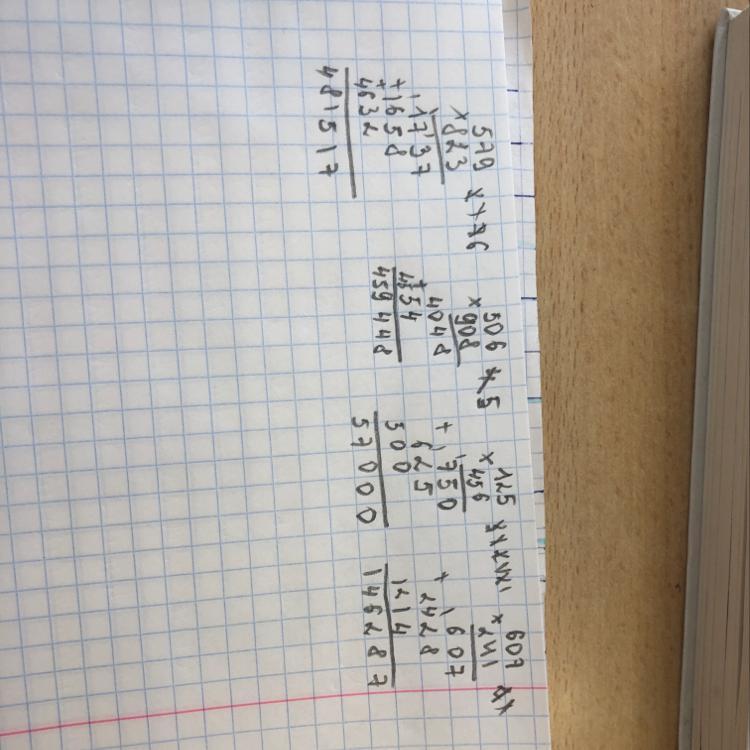 579
×823
1737
+1658
+4632
481517
506
×908
4048
+4554
459448
125
×456
+1750
625
500
57000
607
×241
+1607
2428
1214
146287